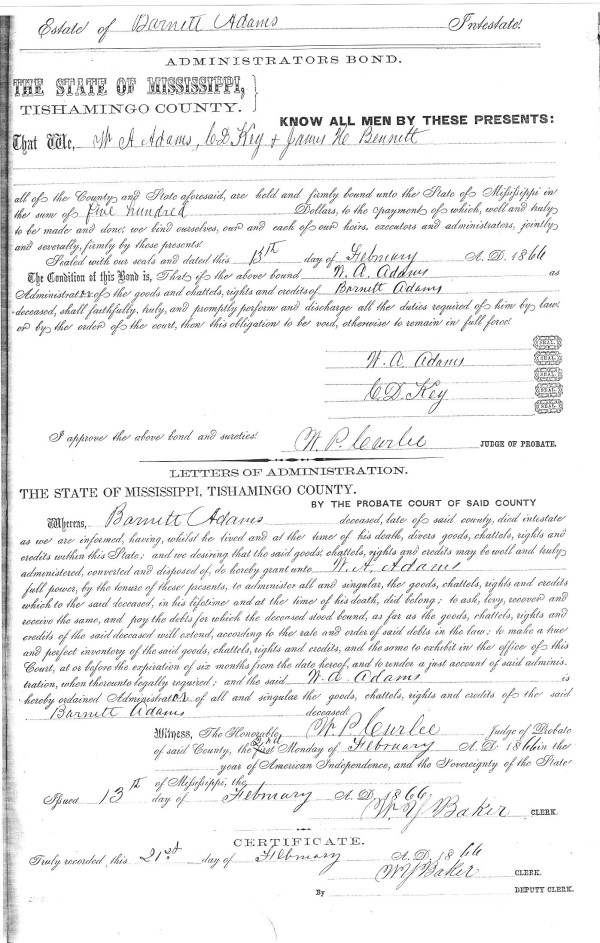 Estate of Barnett Adams Intestate.
ADMINISTRATORS BOND.
THE STATE OF MISSISSIPPI,
TISHAMINGO COUNTY.
KNOW ALL MEN BY THESE PRESENTS:
That We, W A Adams, C D Key + James H Bennett
all of the County and State aforesaid, are held and firmly bound unto the State of Mississippi in
the sum of five hundred Dollars, to the payment of which, well and truly
to be made and done, we bind ourselves, our and each of our heirs, executors and administrators, jointly
and severally, firmly by these presents.
Sealed with our seals and dated this 13th day of February A. D. 1866
The Condition of this Bond is, That if the above bound W. A. Adams as
Administrator of the goods and chattels, rights and credits of Barnett Adams
deceased, shall faithfully, truly, and promptly perform and discharge all the duties required of him by law
or by the order of the court, then this obligation to be void, otherwise to remain in full force.
SEAL.
W. A. Adams SEAL.
SEAL.
C. D. Key SEAL.
SEAL.
I approve the above bond and sureties. W. P. Curlee JUDGE OF PROBATE.
LETTERS OF ADMINISTRATION.
THE STATE OF MISSISSIPPI, TISHAMINGO COUNTY.
BY THE PROBATE COURT OF SAID COUNTY
Whereas, Barnett Adams deceased, late of said county, died intestate
as we are informed, having, whilst he lived and at the time of his death, divers goods, chattels, rights and
credits within this State; and we desiring that the said goods, chattels, rights and credits may be well and truly
administered, converted and disposed of, do hereby grant unto W. A. Adams
full power, by the tenure of these presents, to administer all and singular, the goods, chattels, rights and credits
which to the said deceased, in his lifetime and at the time of his death, did belong; to ask, levy, recover and
receive the same, and pay the debts for which the deceased stood bound, as far as the goods, chattels, rights and
credits of the said deceased will extend, according to the rate and order of said debts in the law; to make a true
and perfect inventory of the said goods, chattels, rights and credits, and the same to exhibit in the office of this
Court, at or before the expiration of six months from the date hereof, and to render a just account of said adminis-
tration, when thereunto legally required; and the said W. A. Adams is
hereby ordained Administrator of all and singular the goods, chattels, rights and credits of the said
Barnett Adams deceased
Witness, The Honorable, W P Curlee Judge of Probate
of said County, the first 2nd Monday of February A. D. 1866 in the
year of American Independence, and the Sovereignty of the State
of Mississippi, the
Issued 13th day of February A. D. 1866.
W. Y Baker CLERK.
CERTIFICATE.
Truly recorded, this 21st day of February A. D. 1866
W Y Baker CLERK.
By DEPUTY CLERK.